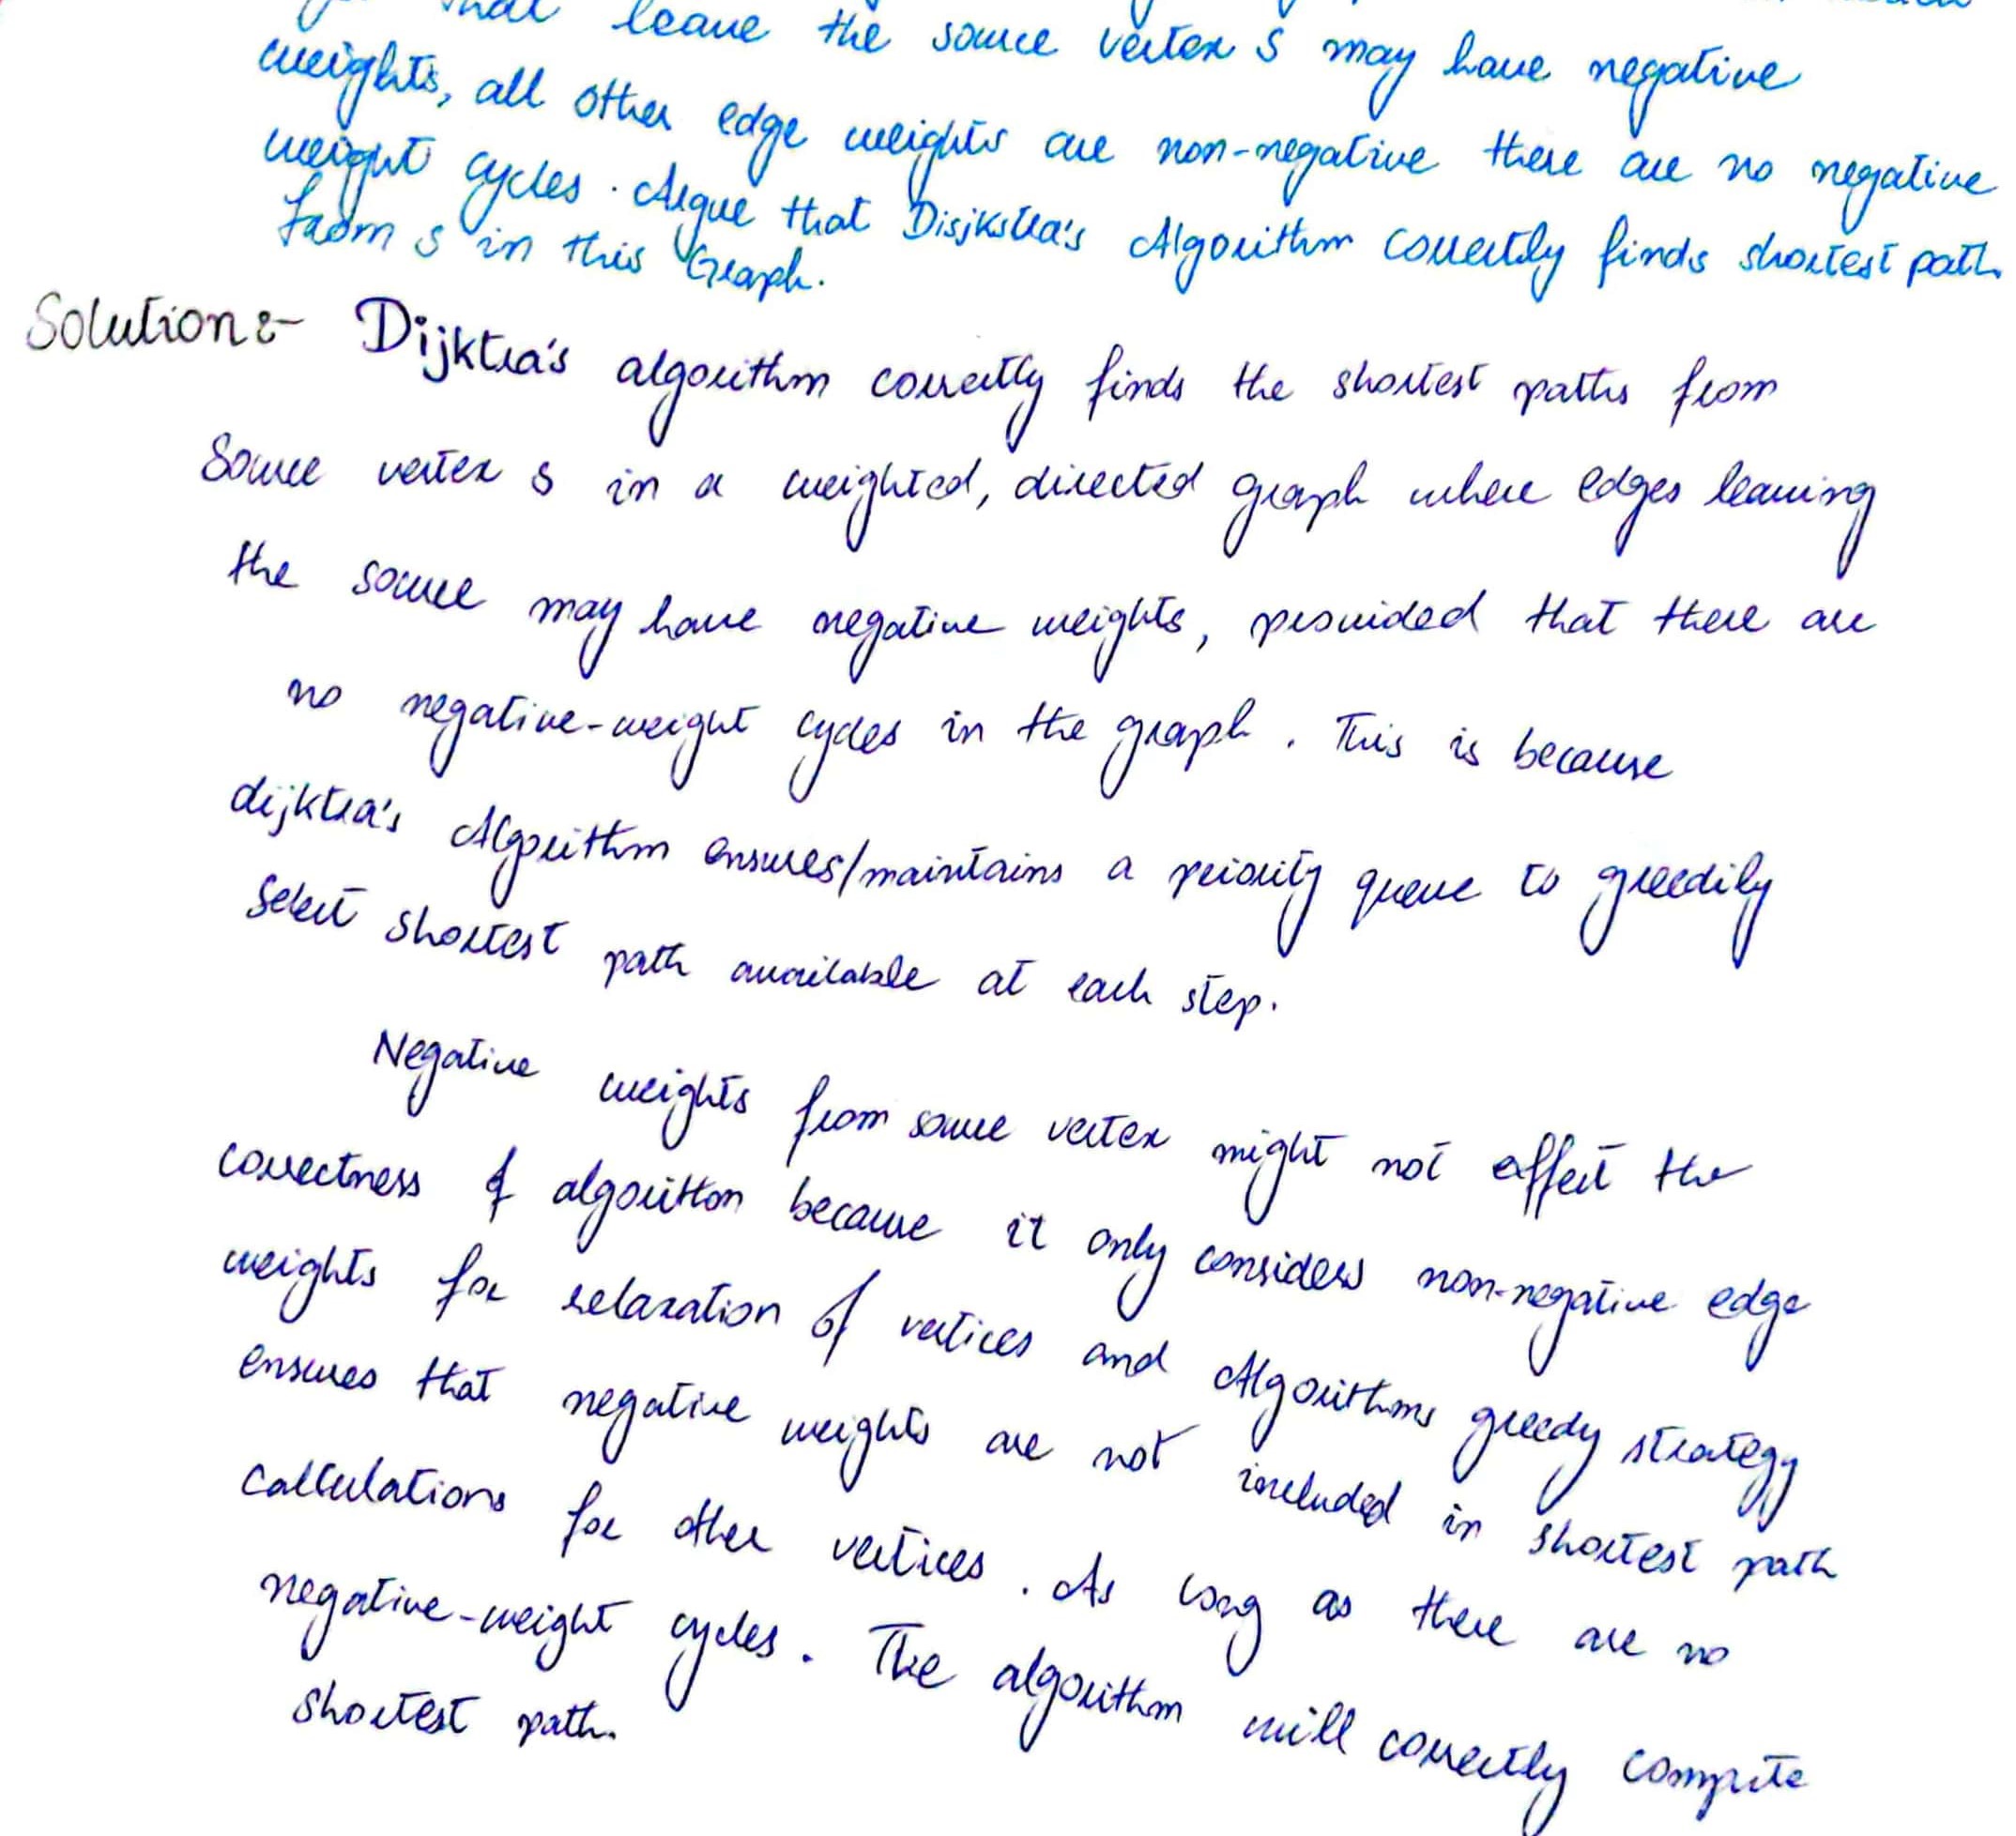 that leave the source vertex s may have negative
weights, all other edge weights are non-negative there are no negative
weight cycles. Argue that Disjkstra's Algorithm correctly finds shortest path
from s in this Graph.
Solution:- Dijktra's algorithm correctly finds the shortest paths from
Source vertex s in a weighted, directed graph where edges leaving
the source may have negative weights, provided that there are
no negative-weight cycles in the graph. This is because
dijktra's Algorithm ensures/maintains a priority queue to greedily
Select shortest path available at each step.
Negative weights from source vertex might not effect the
correctness of algorithm because it only considers non-negative edge
weights for relaxation of vertices and Algorithms greedy strategy
ensures that negative weights are not included in shortest path
calculations for other vertices. As long as there are no
negative-weight cycles. The algorithm will correctly compute
shortest path.